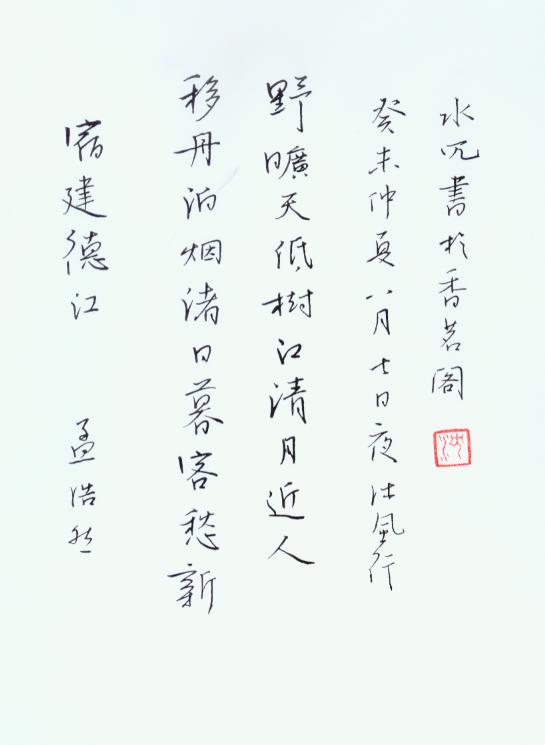 宿建德江 孟浩然
移舟泊烟渚日暮客愁新
野曠天低樹江清月近人
癸未仲夏八月七日夜風行
水書於香茗閣